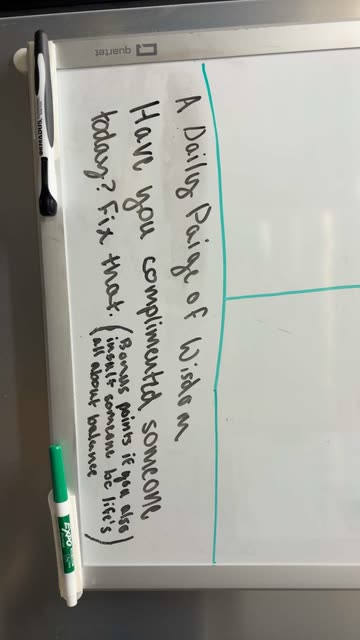 A Daily Paige of Wisdom
Have you complimented someone
today? Fix that. (Bonus points if you also
insult someone bc life's
all about balance)
quartet
EXPO